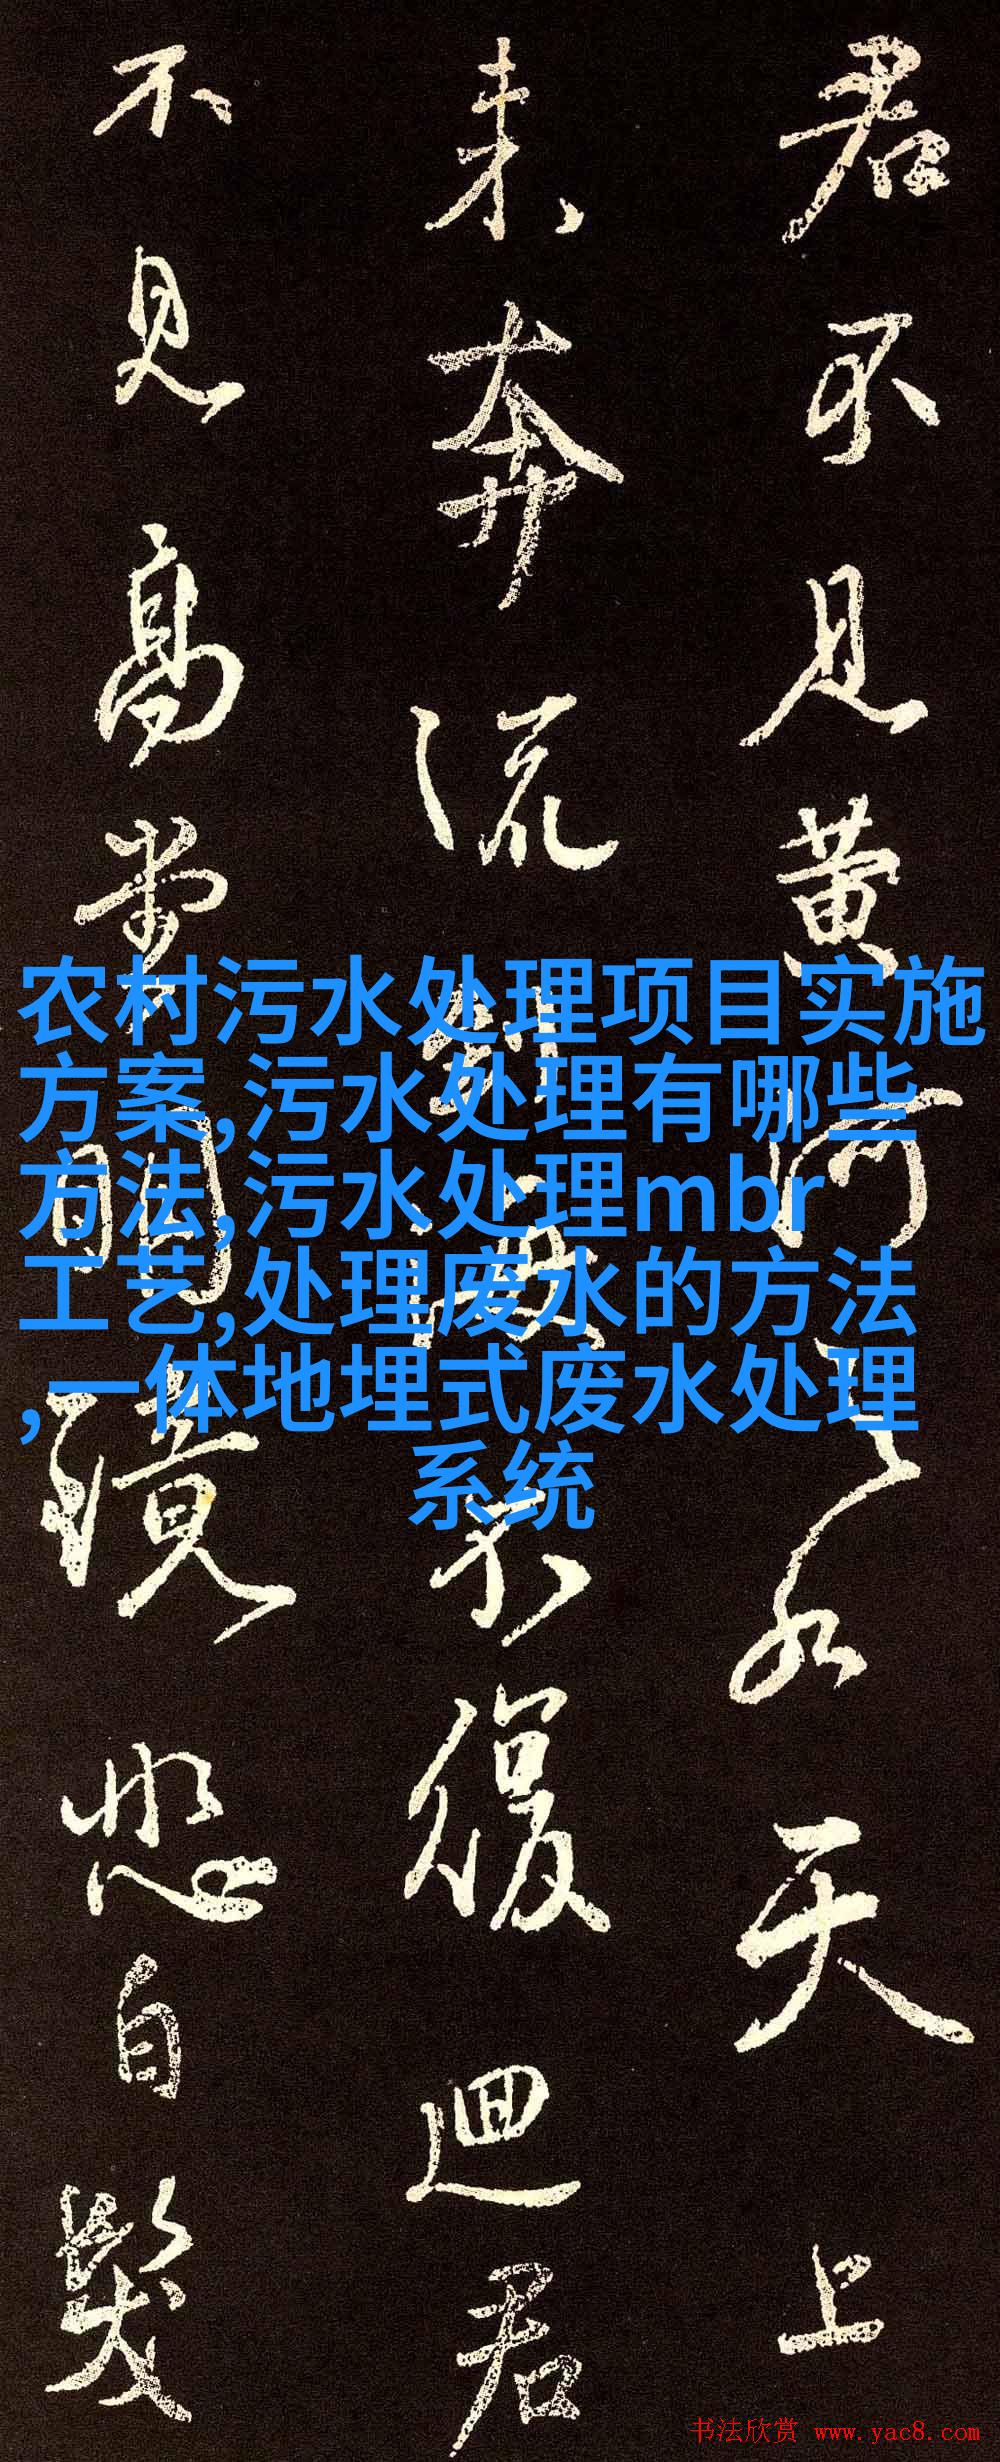 君不见黄河之水天上
来奔流到海不复迴君
不见高堂明镜悲白发
农村污水处理项目实施
方案,污水处理有哪些
方法,污水处理mbr
工艺,处理废水的方法
,一体地埋式废水处理
系统
书法欣赏 www.yac8.com